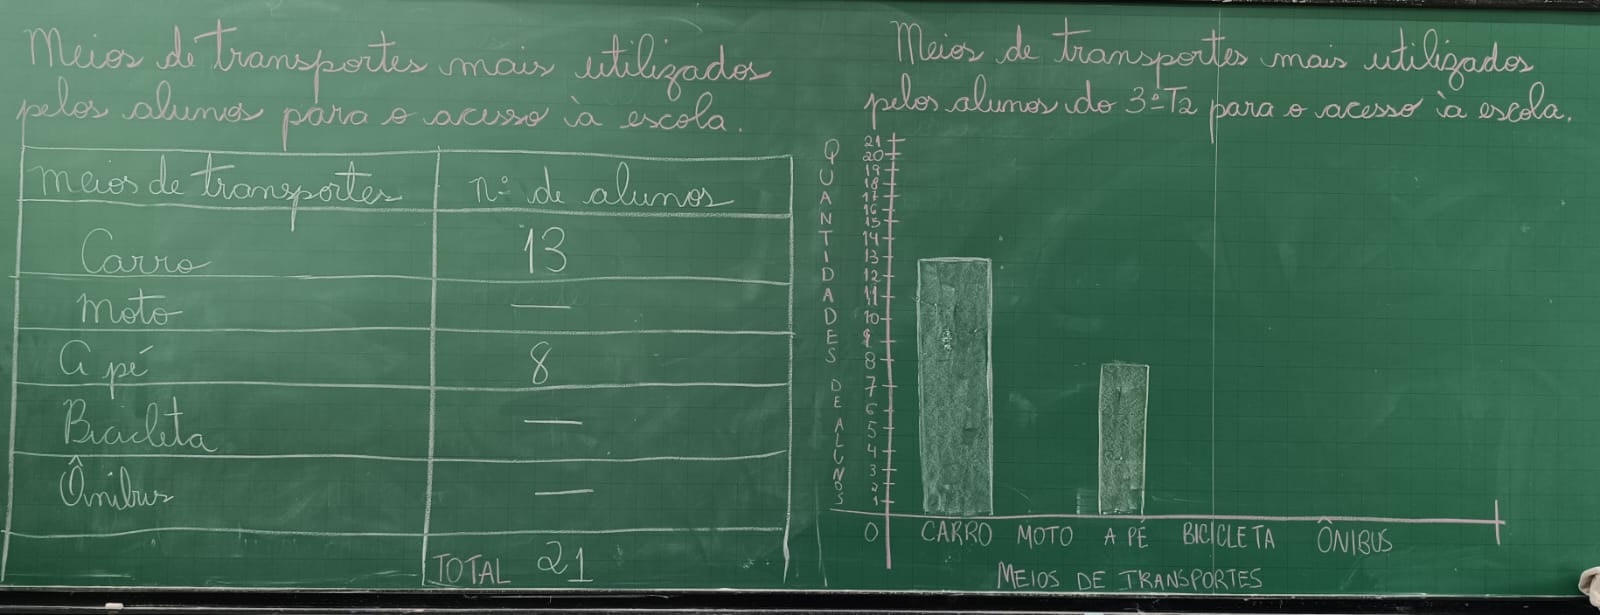 Meios de transportes mais utilizados
pelos alunos para o acesso à escola.
Meios de transportes nº de alunos
Carro 13
Moto —
A pé 8
Bicicleta —
Ônibus —
TOTAL 21
Meios de transportes mais utilizados
pelos alunos do 3º T2 para o acesso à escola.
QUANTIDADES DE ALUNOS
21
20
19
18
17
16
15
14
13
12
11
10
9
8
7
6
5
4
3
2
1
0 CARRO MOTO A PÉ BICICLETA ÔNIBUS
MEIOS DE TRANSPORTES